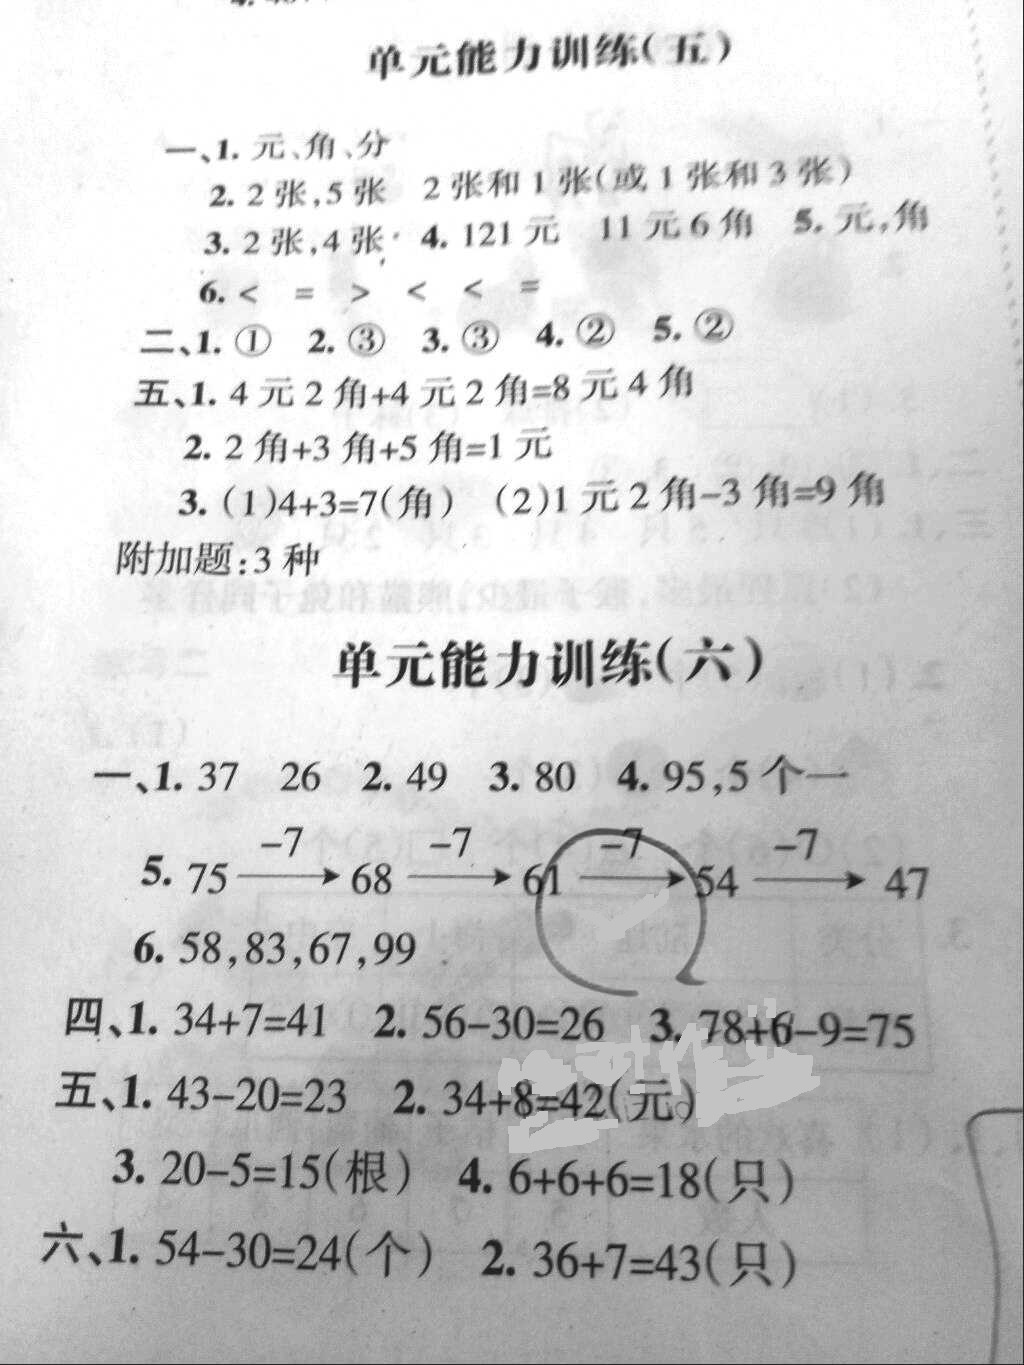 单元能力训练(五)
一、1. 元、角、分
2. 2张,5张 2张和1张(或1张和3张)
3. 2张,4张 4. 121元 11元6角 5. 元,角
6. < = > < < =
二、1. ① 2. ③ 3. ③ 4. ② 5. ②
五、1. 4元2角+4元2角=8元4角
2. 2角+3角+5角=1元
3. (1)4+3=7(角) (2)1元2角-3角=9角
附加题:3种
单元能力训练(六)
一、1. 37 26 2. 49 3. 80 4. 95,5个一
-7 -7 -7 -7
5. 75 → 68 → 61 → 54 → 47
6. 58,83,67,99
四、1. 34+7=41 2. 56-30=26 3. 78+6-9=75
五、1. 43-20=23 2. 34+8=42(元)
3. 20-5=15(根) 4. 6+6+6=18(只)
六、1. 54-30=24(个) 2. 36+7=43(只)